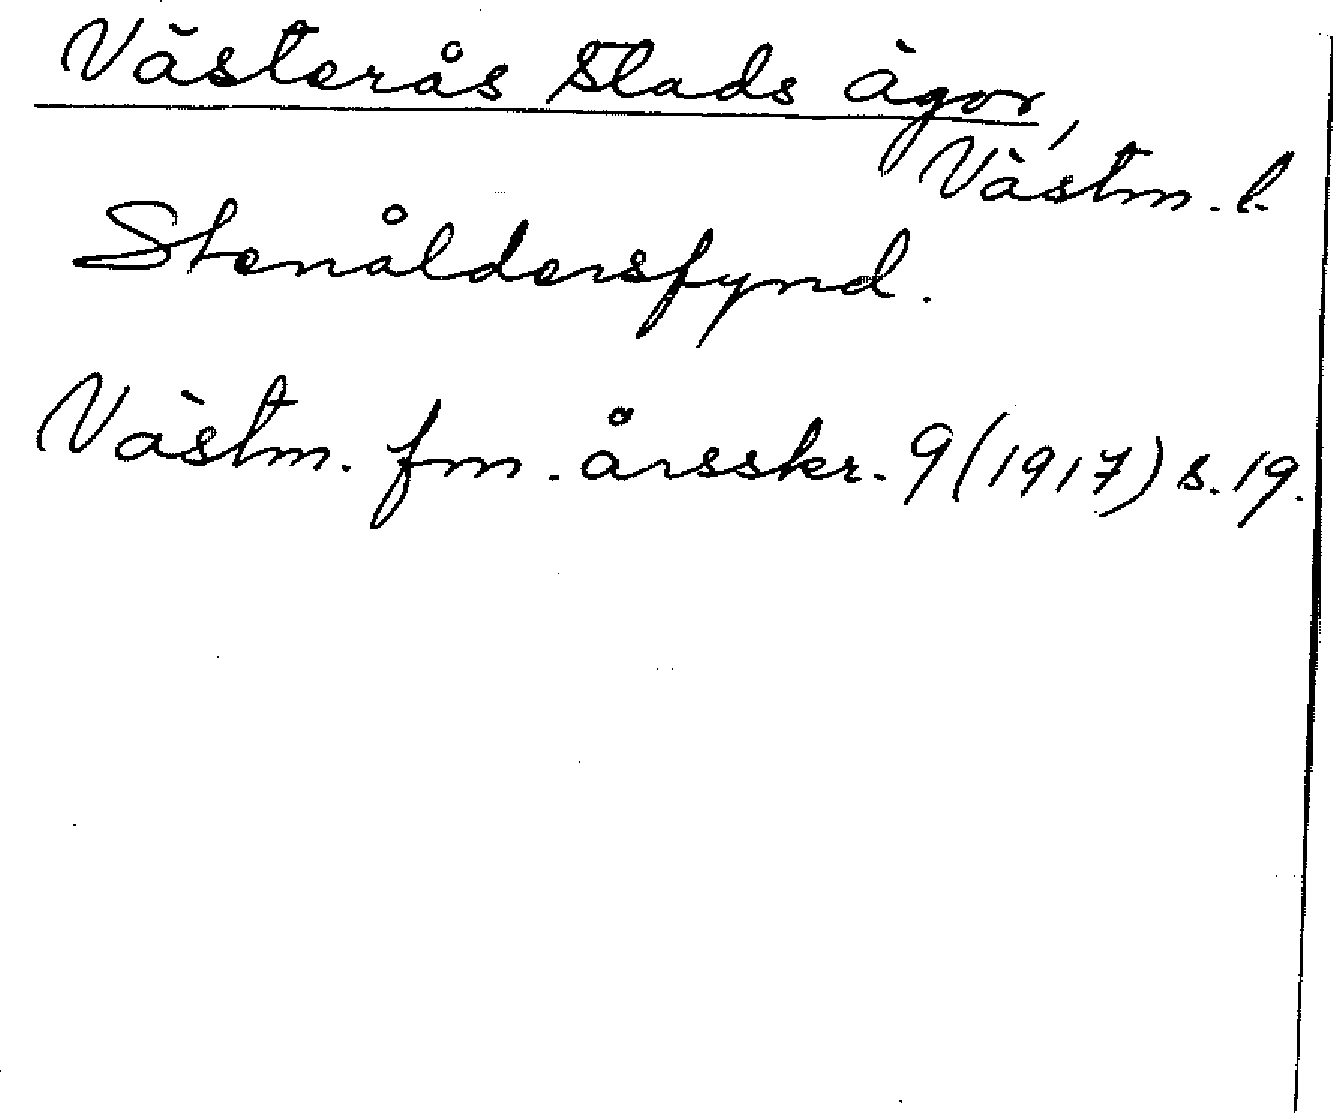 Västerås stads ägor,
Västm. l.
Stenåldersfynd.
Västm. fm. årsskr. 9 (1917) s. 19.